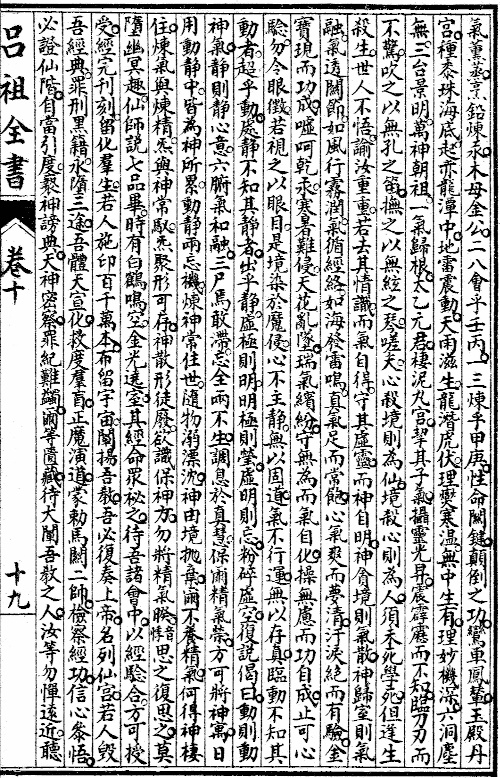 氣薰蒸烹鉛煉汞木母金公二八會乎壬丙一三煉乎甲庚性命關鍵顛倒之功鸞車鳳輦玉殿丹
宮種泰珠海底起赤龍潭中地雷震動天雨滋生龍潛虎伏理爕寒温無中生有理妙機深六洞塵
無三台景明萬神朝祖一氣歸根太乙元君棲泥九宮挈其子氣攝靈光昇震霹靂而不知臨刀刃而
不驚吹之以無孔之笛撫之以無絃之琴嗟夫心殺境則為仙境殺心則為人須未死學死但達生
殺生世人不悟諭汝重重若去其情識而氣自得守其虛靈而神自明神脊境則氣散神歸室則氣
融氣透關節如風行霧潤氣循經絡如海發雷鳴真氣足而常飽心氣爽而夢清汗淚絕而有驗金
寶現而功成噓呵乾汞寒暑難侵天花亂墜瑞氣繽紛守無為而氣自化操無慮而功自成止可心
驗勿令眼徵若視之以眼目是境染於魔侵心不主靜無以固道氣不行運無以存真臨動不知其
動者超乎動處靜不知其靜者出乎靜虛極則明明極則瑩虛明則忘粉碎虛空復説偈曰動則動
神氣靜則靜心意六腑氣和融三尸馬敢滯忘全兩不生調息於真慧保爾精氣榮方可將神寓日
用動靜中皆為神所累動靜兩忘機煉神常住世隨物溺漂沈神由境拋棄爾不養精氣何得神棲
住煉氣與煉精炁與神常馭炁聚形可存神散形徒廢欲識保神方勿將精氣睽暗悖思之復思之莫
墮幽冥趣仙師説七品畢時有白鶴鳴空金光遶室其經命眾秘之待吾諸會中以經驗合方可授
受經完刊刻留化羣生若人施印百千萬本布留宇宙闡揚吾教吾必復奏上帝名列仙宮若人毀
吾經典罪刑黑籍永墮三途吾體天宣化救度羣盲正魔演道蒙勅馬關二師檢察經功信心叅悟
必證仙階自富引度褻神謗典天神密察罪紀難蠲爾等慎藏待大闡吾教之人汝等勿憚遠近聽
呂祖全書
卷十
十九